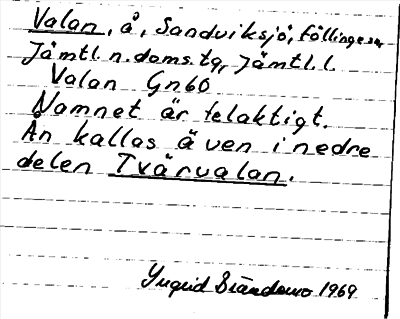 Valan, å, Sandviksjö, Föllinge sn,
Jämtl. n. doms. tg, Jämtl. l.
Valan Gn60
Namnet är felaktigt.
Ån kallas även i nedre
delen Tvärvalan.
Yngrid 1969